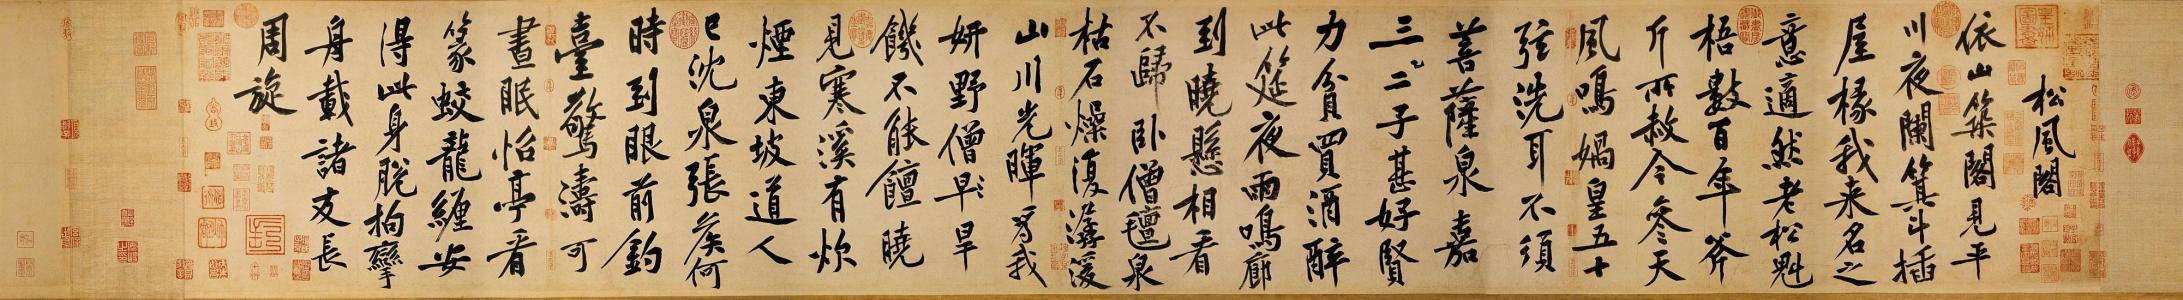 松風閣
依山築閣見平
川夜闌箕斗插
屋椽我来名之
意適然老松魁
梧數百年斧
斤所赦今參天
風鳴媧皇五十
弦洗耳不須
菩薩泉嘉
三二子甚好賢
力貧買酒醉
此筵夜雨鳴廊
到曉懸相看
不歸卧僧氈泉
枯石燥復潺湲
山川光暉爲我
妍野僧早旱
饑不能饘曉
見寒溪有炊
煙東坡道人
已沈泉張侯何
時到眼前釣
臺驚濤可
晝眠怡亭看
篆蛟龍纏安
得此身脫拘攣
舟載諸友長
周旋